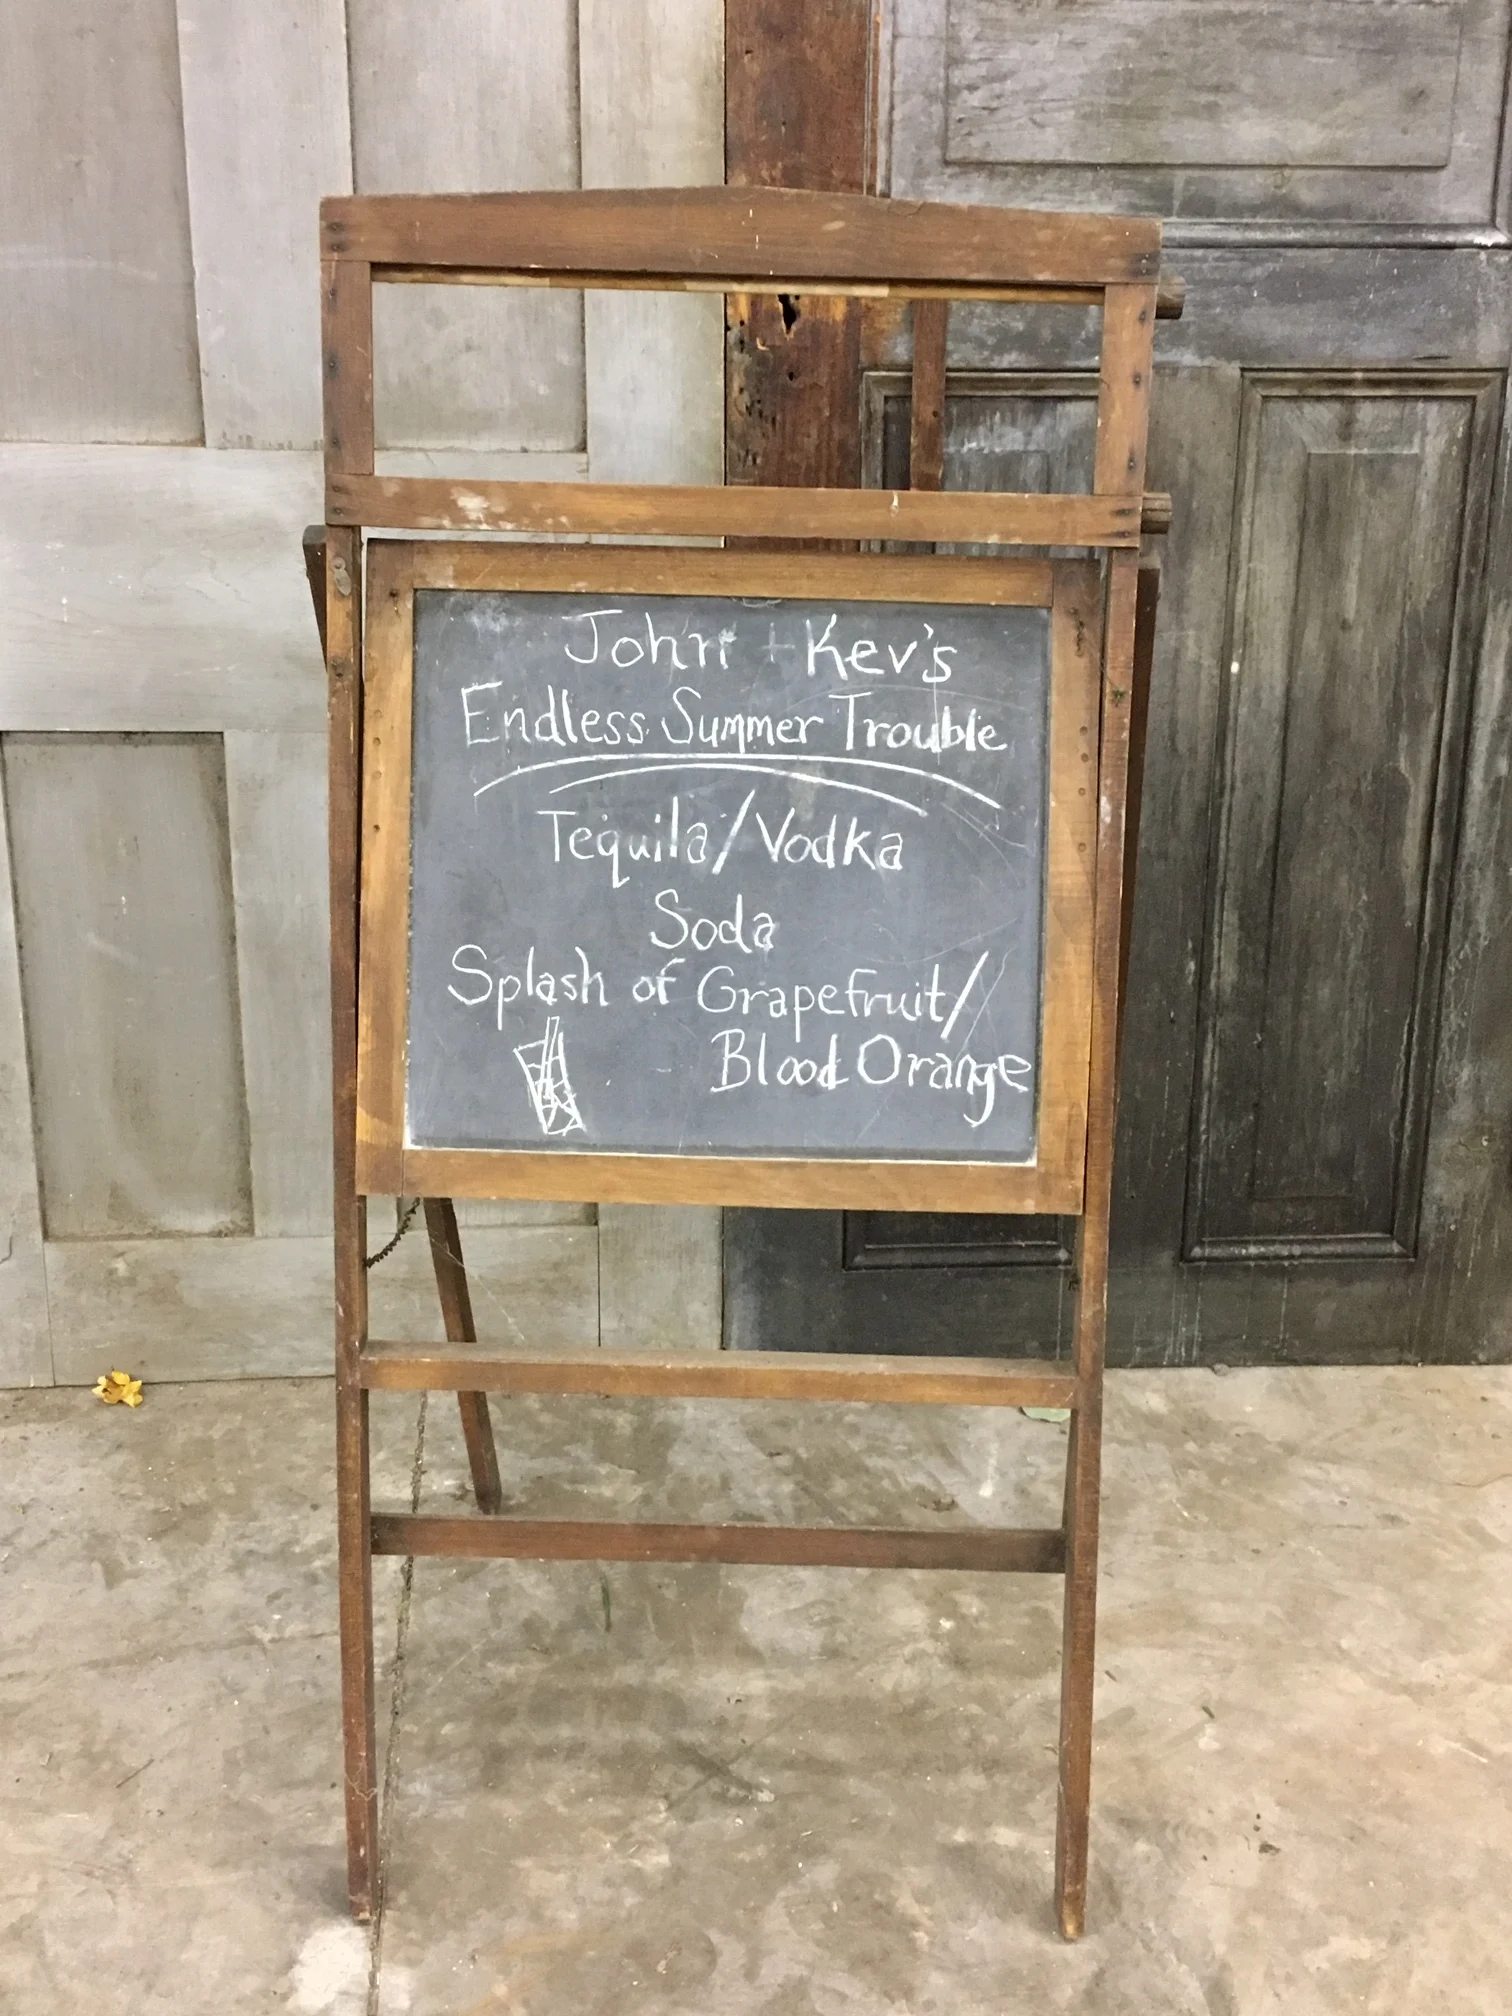 John + Kev's
Endless Summer Trouble
Tequila/Vodka
Soda
Splash of Grapefruit/
Blood Orange